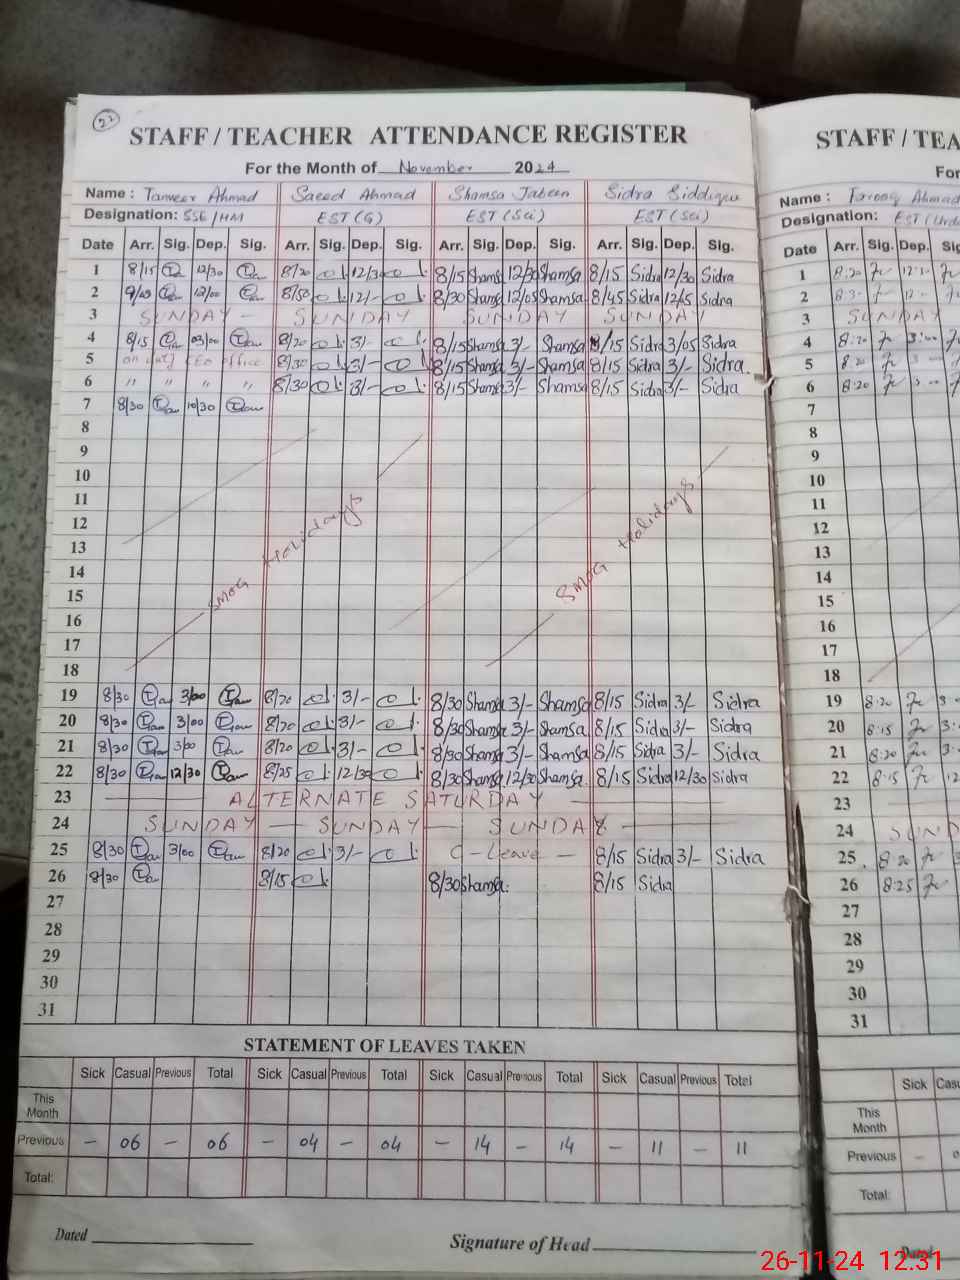 22
STAFF / TEACHER ATTENDANCE REGISTER
For the Month of November 2024
Name : Tanveer Ahmad Saeed Ahmad Shamsa Jabeen Sidra Siddique
Designation: SSE/HM EST(G) EST(Sci) EST(Sci)
Date Arr. Sig. Dep. Sig. Arr. Sig. Dep. Sig. Arr. Sig. Dep. Sig. Arr. Sig. Dep. Sig.
1 8/15 12/30 8/20 12/30 8/15 Shamsa 12/30 Shamsa 8/15 Sidra 12/30 Sidra
2 12/00 8/50 12/- 8/30 Shamsa 12/05 Shamsa 8/45 Sidra 12/15 Sidra
3 SUNDAY - SUNDAY SUNDAY SUNDAY
4 8/15 03/00 8/20 3/- 8/15 Shamsa 3/- Shamsa 8/15 Sidra 3/05 Sidra
5 on duty CEO office 8/30 3/- 8/15 Shamsa 3/- Shamsa 8/15 Sidra 3/- Sidra.
6 " " " " 8/30 3/- 8/15 Shamsa 3/- Shamsa 8/15 Sidra 3/- Sidra
7 8/30 10/30
8
9
10
11
12
13
14
15
16
17
18
SMOG Holidays
SMOG Holidays
19 8/30 3/00 8/20 3/- 8/30 Shamsa 3/- Shamsa 8/15 Sidra 3/- Sidra
20 8/30 3/00 8/20 3/- 8/30 Shamsa 3/- Shamsa 8/15 Sidra 3/- Sidra
21 8/30 3/00 8/20 3/- 8/30 Shamsa 3/- Shamsa 8/15 Sidra 3/- Sidra
22 8/30 12/30 8/25 12/30 8/30 Shamsa 12/30 Shamsa 8/15 Sidra 12/30 Sidra
23 ALTERNATE SATURDAY
24 SUNDAY — SUNDAY — SUNDAY
25 8/30 3/00 8/20 3/- C-Leave - 8/15 Sidra 3/- Sidra
26 8/30 8/15 8/30 Shamsa. 8/15 Sidra
27
28
29
30
31
STATEMENT OF LEAVES TAKEN
Sick Casual Previous Total Sick Casual Previous Total Sick Casual Previous Total Sick Casual Previous Total
This Month
Previous - 06 - 06 - 04 - 04 - 14 - 14 - 11 - 11
Total:
Dated Signature of Head
STAFF / TEA
For
Name : Farooq Ahmad
Designation: EST(Urdu
Date Arr. Sig. Dep. Sig
1 8:20
2
3 SUNDAY
4 8:20 3:00
5 8:20 3
6 8:20 3:00
7
8
9
10
11
12
13
14
15
16
17
18
19 8:20 3:
20 8:15 3:
21 8:20 3:
22 8:15 12
23
24 SUND
25 8:20 3
26 8:25
27
28
29
30
31
Sick Casu
This Month
Previous -
Total:
Dated
26-11-24 12.31